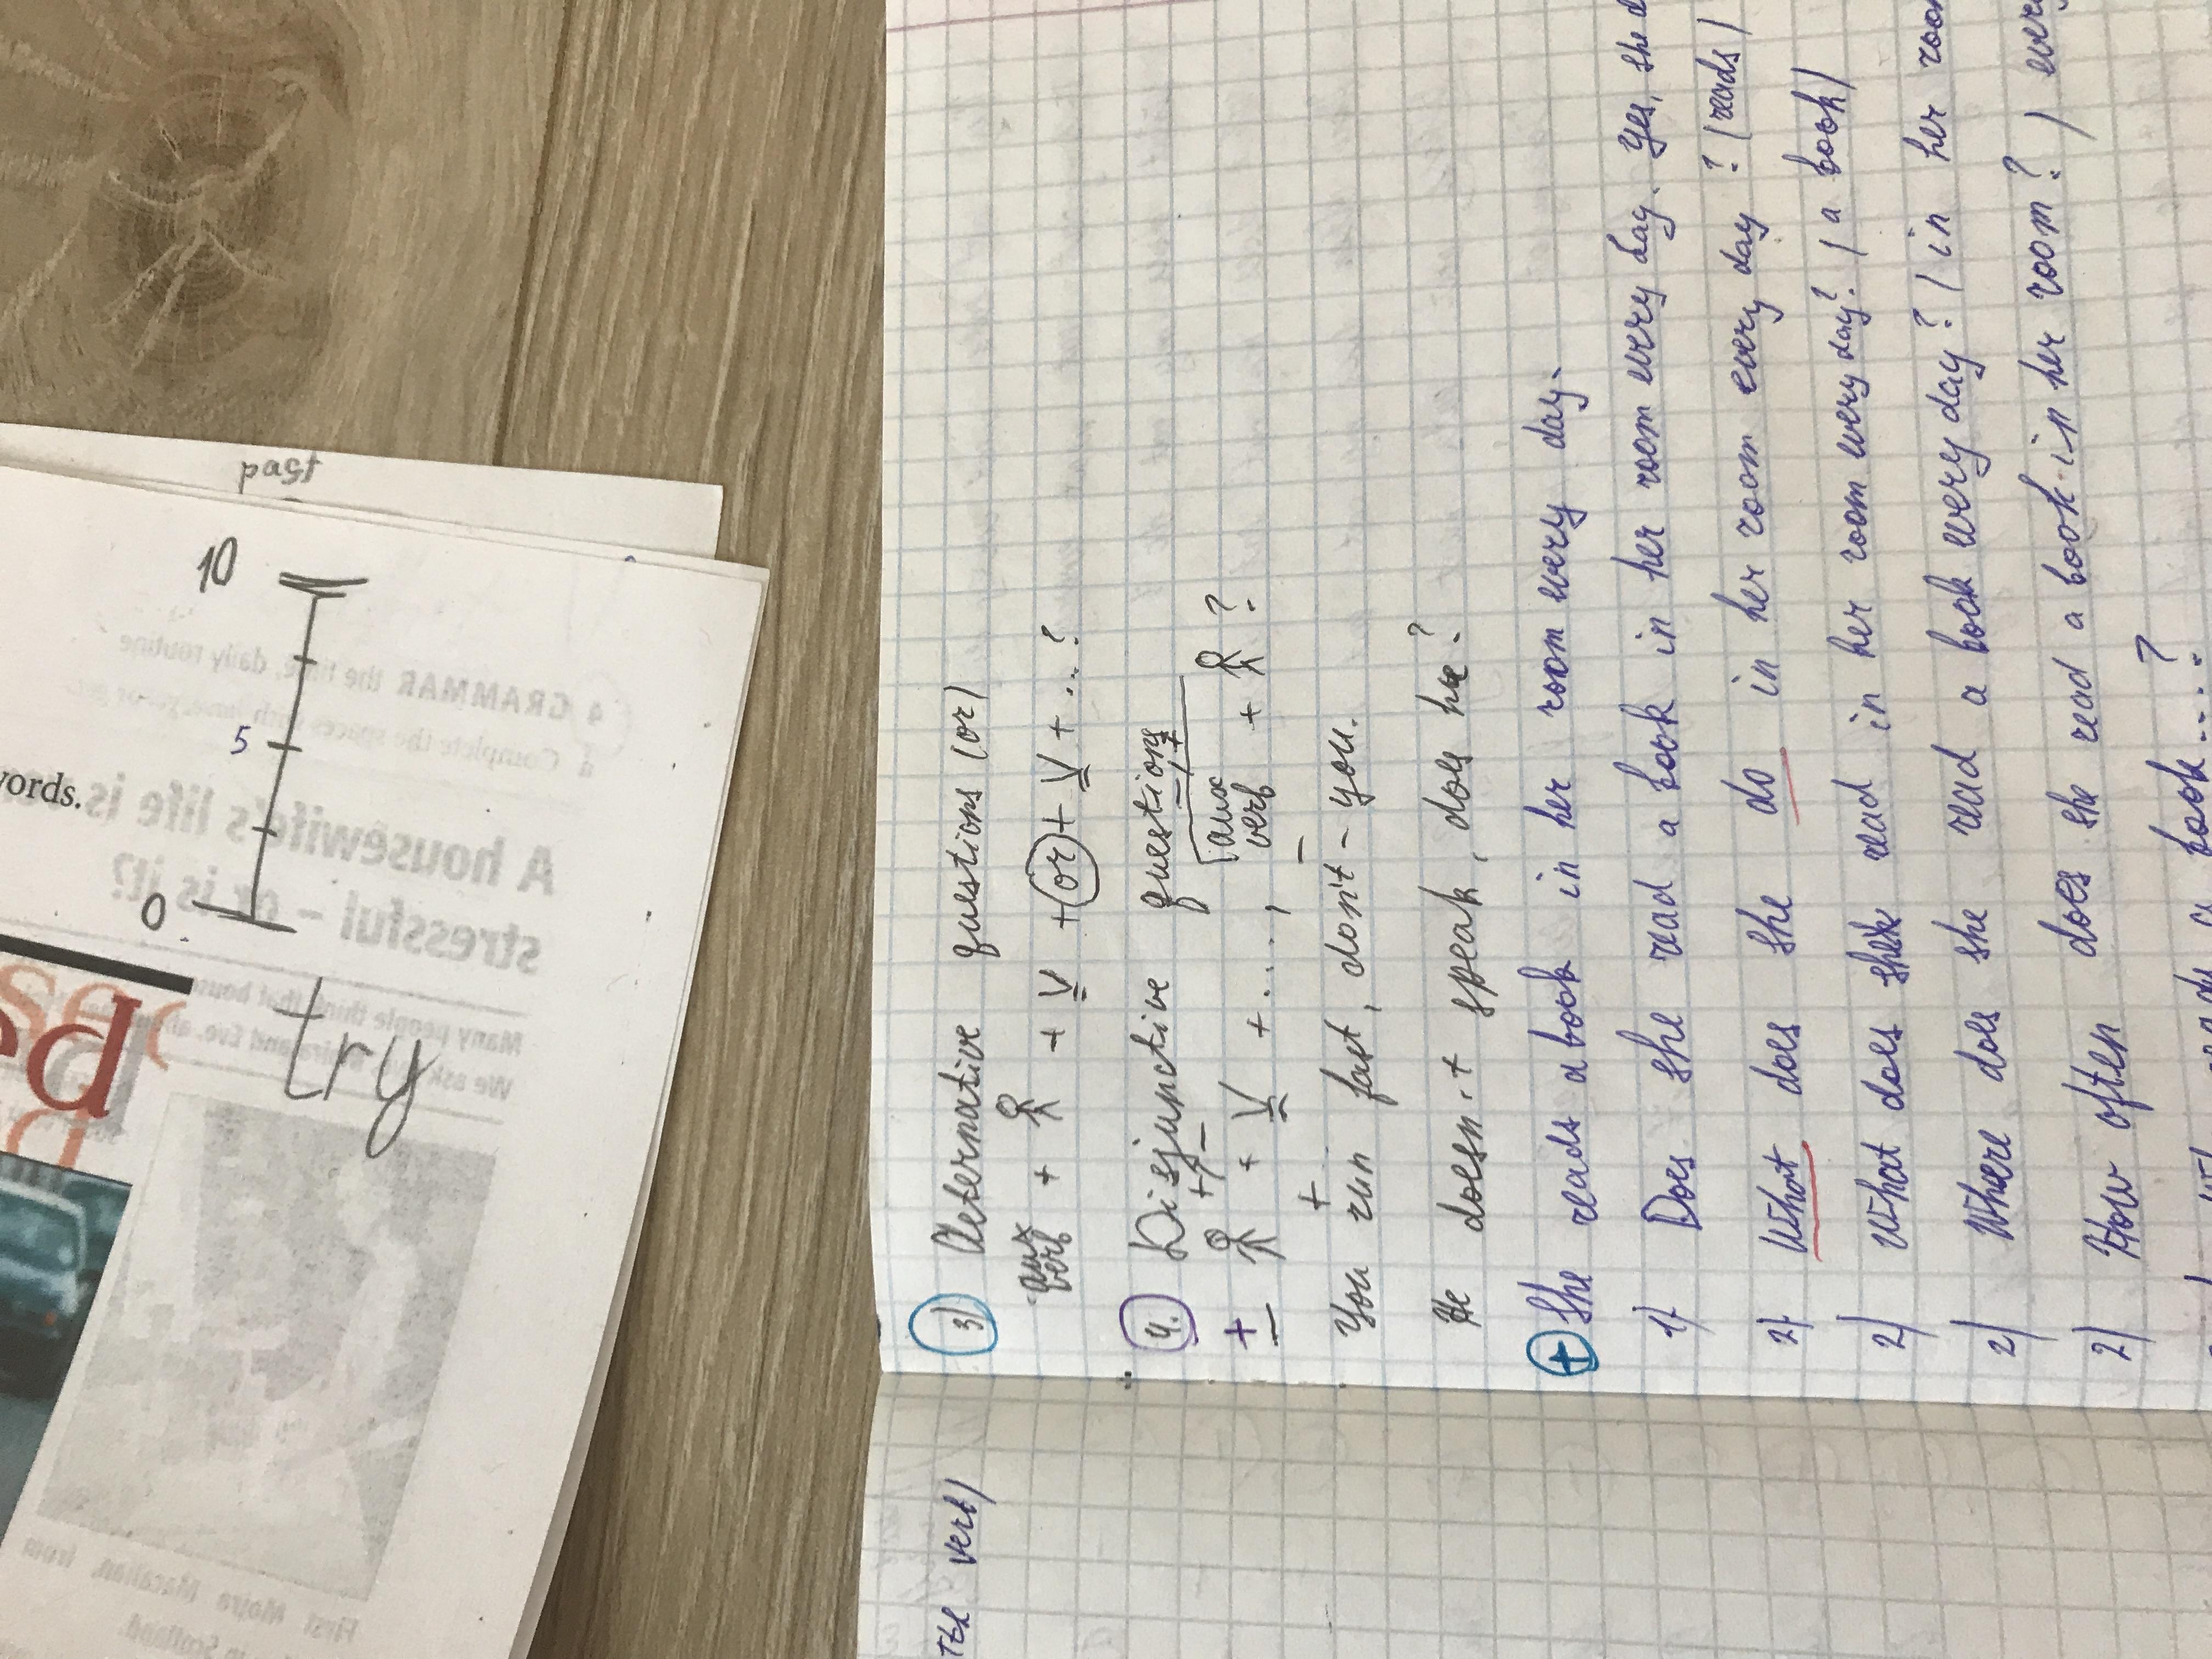 past
10
5
0
try
words.
4 GRAMMAR the time, daily routine
Complete the spaces with
A housewife's life is
stressful – or is it?
Many people think that
We ask
First Moira Macalian from
in Scotland.
the verb)
3) Alternative questions (or)
aux verb + + V + (or) + V + ...?
4. Disjunctive questions
+ +/- -/+
- + V + ..., aux verb + ?
+ -
You run fast, don't - you.
He doesn't speak, does he?
+ She reads a book in her room every day.
1) Does she read a book in her room every day. Yes, she d
2) What does she do in her room every day? (reads)
2) What does she read in her room every day? (a book)
2) Where does she read a book every day? (in her room
2) How often does she read a book in her room? (every
book....?